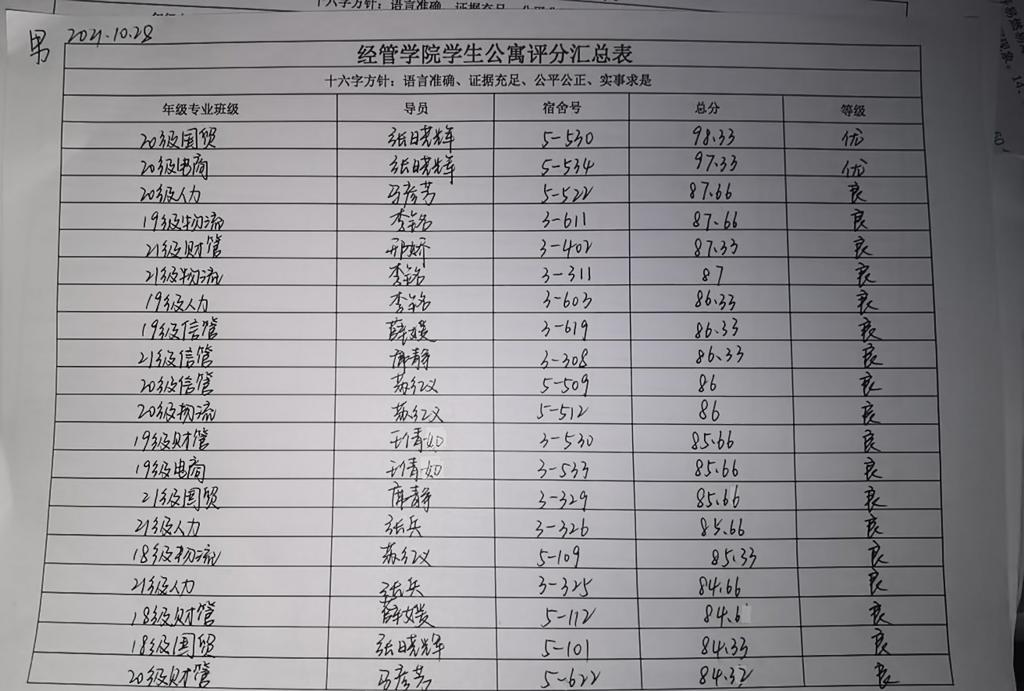 十六字方针：语言准确、证据充足、公平公
男 2021.10.28
经管学院学生公寓评分汇总表
十六字方针：语言准确、证据充足、公平公正、实事求是
年级专业班级 导员 宿舍号 总分 等级
20级国贸 张晓辉 5-530 98.33 优
20级电商 张晓辉 5-534 97.33 优
20级人力 马彦芳 5-522 87.66 良
19级物流 李铭 3-611 87.66 良
21级财管 邢娇 3-402 87.33 良
21级物流 李铭 3-311 87 良
19级人力 李铭 3-603 86.33 良
19级信管 薛媛 3-619 86.33 良
21级信管 席静 3-308 86.33 良
20级信管 苏红义 5-509 86 良
20级物流 苏红义 5-512 86 良
19级财管 王倩如 3-530 85.66 良
19级电商 王倩如 3-533 85.66 良
21级国贸 席静 3-329 85.66 良
21级人力 张兵 3-326 85.66 良
18级物流 苏红义 5-109 85.33 良
21级人力 张兵 3-325 84.66 良
18级财管 薛媛 5-112 84.6 良
18级国贸 张晓辉 5-101 84.33 良
20级财管 马彦芳 5-622 84.32 良